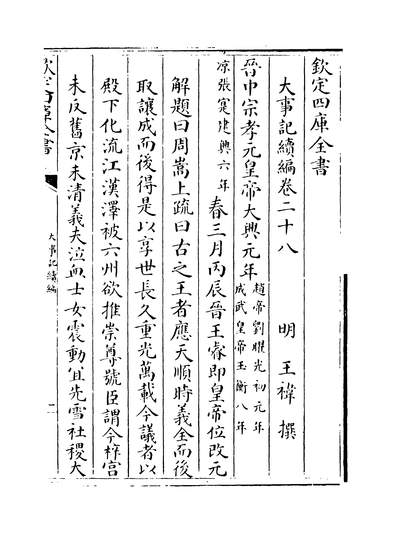 欽定四庫全書
大事記續編卷二十八　明　王禕　撰
晉中宗孝元皇帝大興元年　趙帝劉曜光初元年
成武皇帝玉衡八年
涼張寔建興六年　春三月丙辰晉王睿即皇帝位改元
解題曰周嵩上疏曰古之王者應天順時義全而後
取讓成而後得是以享世長久重光萬載今議者以
殿下化流江漢澤被六州欲推崇尊號臣謂今梓宫
未反舊京未清義夫泣血士女震動宜先雪社稷大
欽定四庫全書
大事記續編